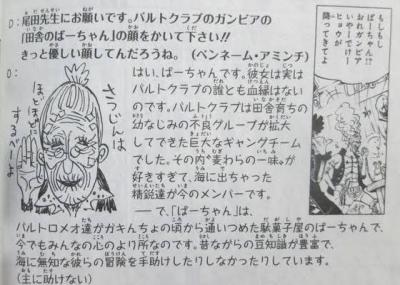 D：尾田先生にお願いです。バルトクラブのガンビアの
「田舎のばーちゃん」の顔をかいて下さい!!
きっと優しい顔してんだろうね。（ペンネーム・アミンチ）
O：
はい、ばーちゃんです。彼女は実は
バルトクラブの誰とも血縁はない
のです。バルトクラブは田舎育ちの
幼なじみの不良グループが拡大
してきた巨大なギャングチーム
でした。その内“麦わらの一味”が
好きすぎて、海に出ちゃった
精鋭達が今のメンバーです。
―で、「ばーちゃん」は、
バルトロメオ達がガキんちょの頃から通いつめた駄菓子屋のばーちゃんで、
今でもみんなの心のより所なのです。昔ながらの豆知識が豊富で、
海に無知な彼らの冒険を手助けしたりしなかったりしています。
（主に助けない）
さつじんは
ほどほどに
するべーよ
もしもし
ばーちゃん!?
おれガンビア
いやーすげー
ヒョウが
降ってきてよ